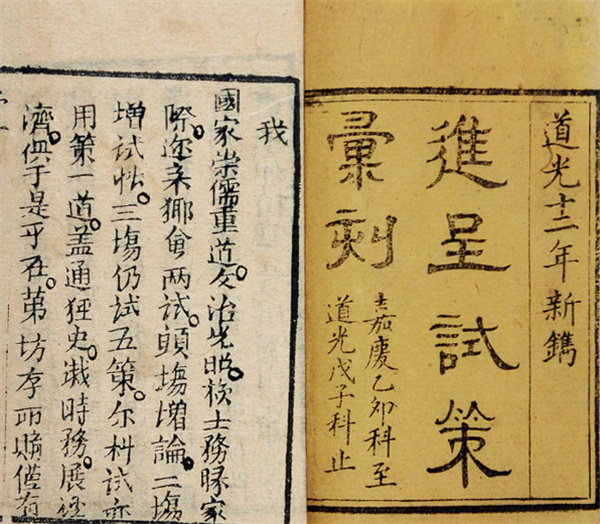 道光十二年新鐫
進呈試策
彙刻
嘉慶乙卯科至
道光戊子科止
我
國家崇儒重道。文治光昭。士務家
際。迩来鄉會两試。頭塲增論。二塲
增試帖。三塲仍試五策。尔科試亦
用第一道。盖通史。識時務。展經
濟。俱于是乎在。第坊存所僅有